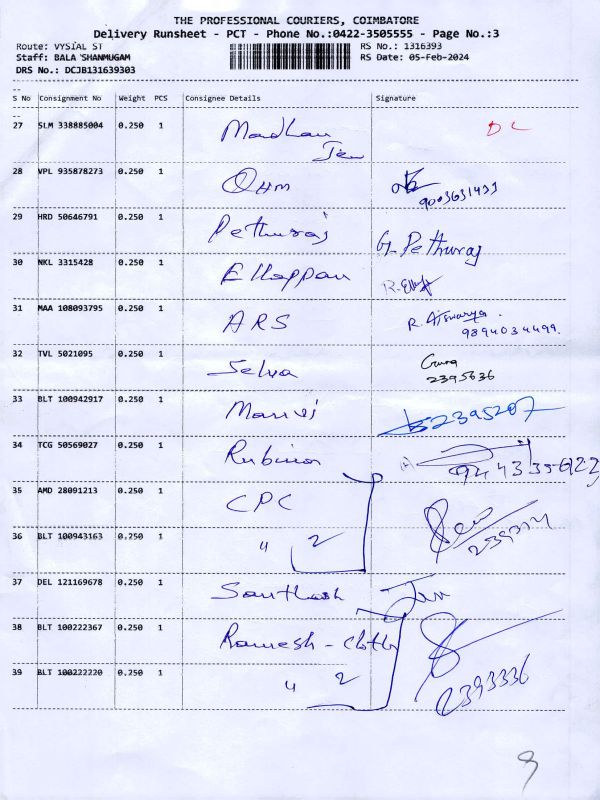 THE PROFESSIONAL COURIERS, COIMBATORE
Delivery Runsheet - PCT - Phone No.:0422-3505555 - Page No.:3
Route: VYSIAL ST RS No.: 1316393
Staff: BALA SHANMUGAM RS Date: 05-Feb-2024
DRS No.: DCJB131639303
S No Consignment No Weight PCS Consignee Details Signature
27 SLM 338885004 0.250 1 Madhan DL
28 VPL 935878273 0.250 1 OHM 9003631493
29 HRD 50646791 0.250 1 Pethuraj G. Pethuraj
30 NKL 3315428 0.250 1 Ellappan
31 MAA 108093795 0.250 1 ARS R. Aiswarya.
9894034499.
32 TVL 5021095 0.250 1 Selva Guna
2395636
33 BLT 100942917 0.250 1 2395207
34 TCG 50569027 0.250 1
35 AMD 28091213 0.250 1 CPC
36 BLT 100943163 0.250 1 " 2
37 DEL 121169678 0.250 1 Santhosh
38 BLT 100222367 0.250 1 Ramesh - Cloth
39 BLT 100222220 0.250 1 " 2 2393336